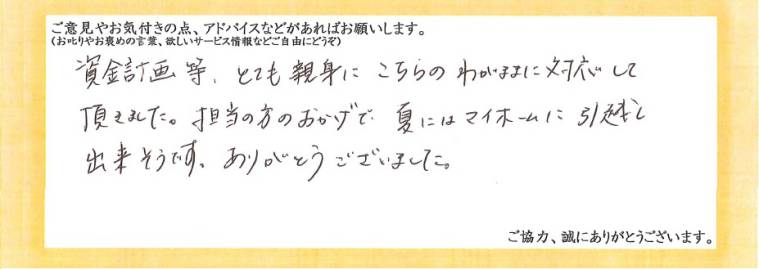 ご意見やお気付きの点、アドバイスなどがあればお願いします。
(お叱りやお褒めの言葉、欲しいサービス情報などご自由にどうぞ)
資金計画等、とても親身に こちらの わがままに対応して
頂きました。担当の方のおかげで 夏にはマイホームに引越し
出来そうです。ありがとうございました。
ご協力、誠にありがとうございます。